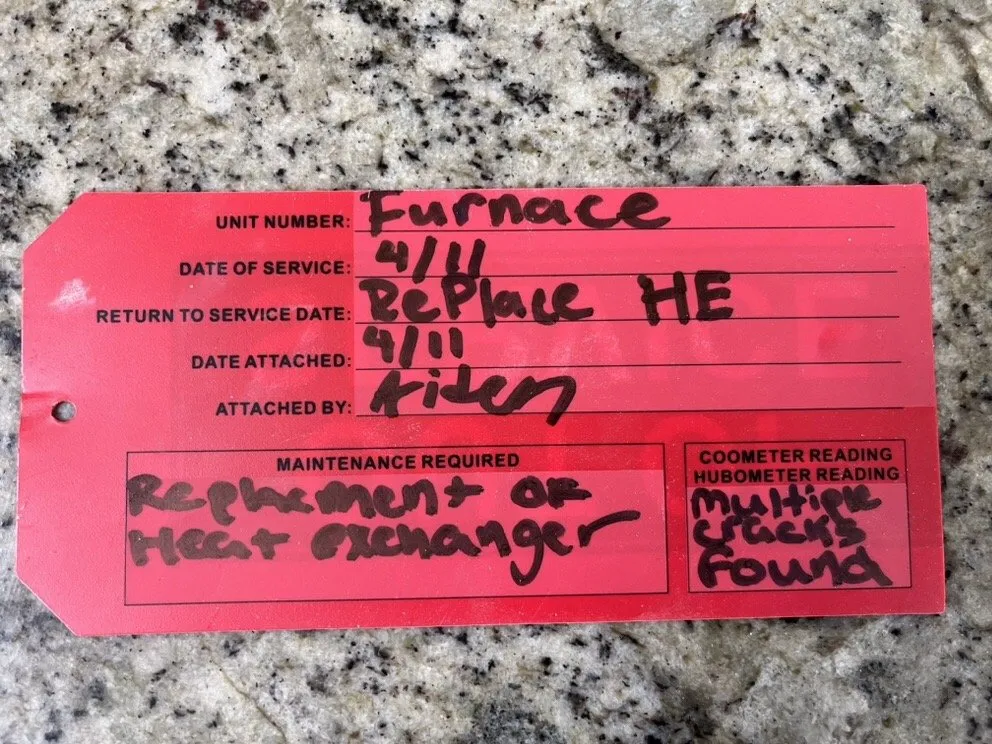 UNIT NUMBER: Furnace
DATE OF SERVICE: 4/11
RETURN TO SERVICE DATE: RePlace HE
DATE ATTACHED: 4/11
ATTACHED BY: Aiden
MAINTENANCE REQUIRED
Replacment of
Heat exchanger
COOMETER READING
HUBOMETER READING
multiple
cracks
found